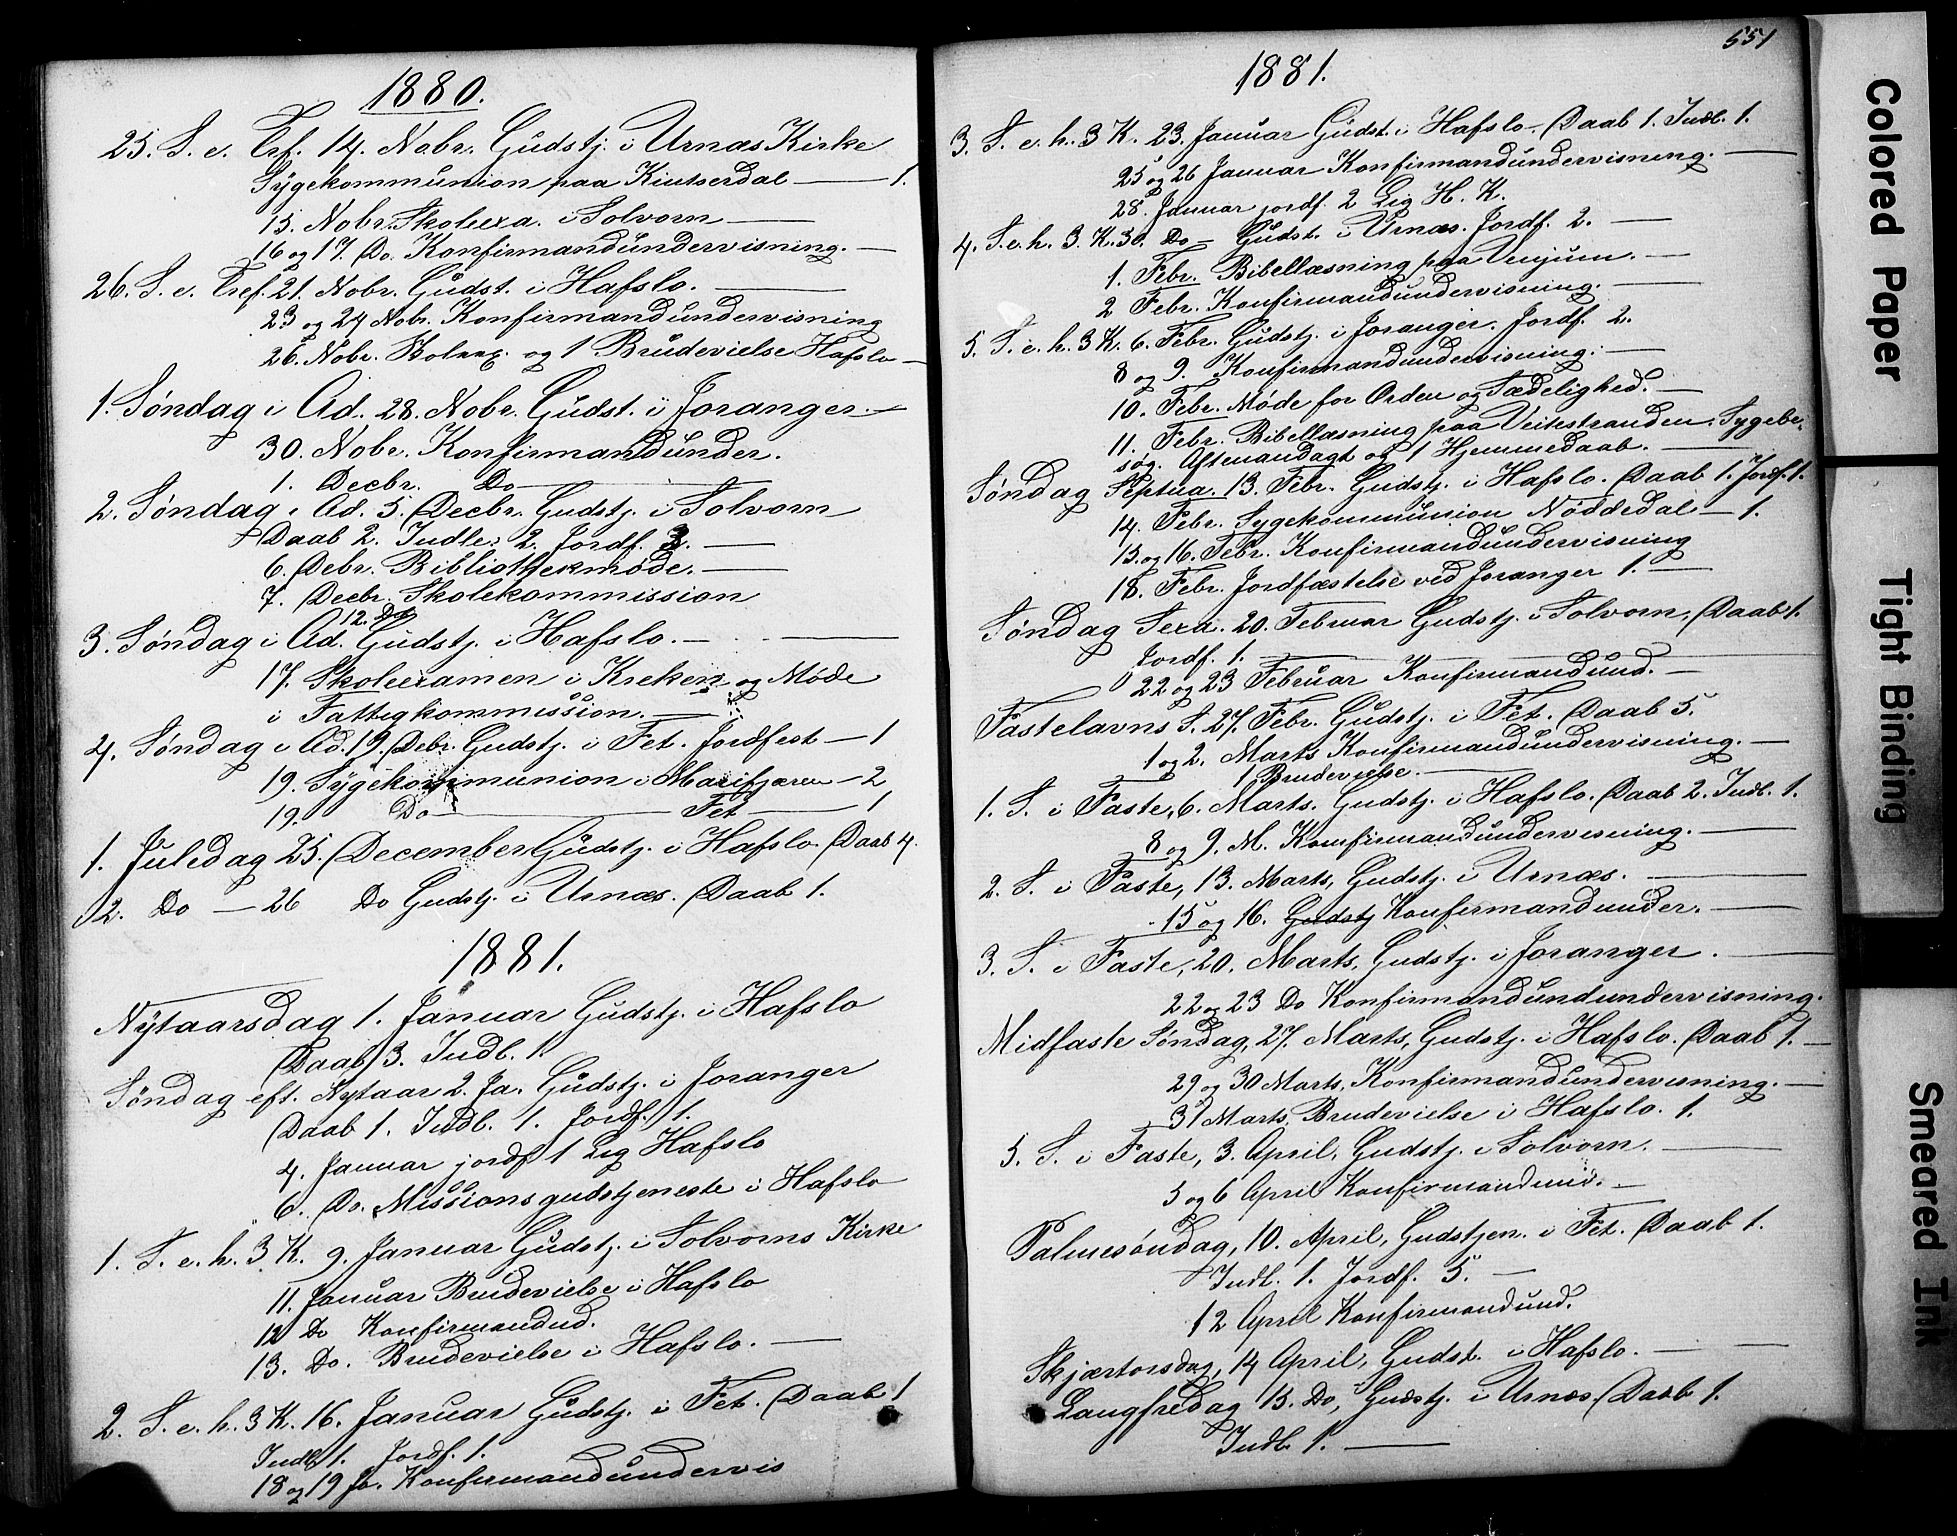 1880.
25. S. e. Tref. 14. Nobr. Gudstj. i Urnæs Kirke
Sygekommunion paa Kintserdal — 1.
15. Nobr. Skoleexa. i Solvorn —
16 og 17. Do. Konfirmandundervisning. —
26. S. e. Tref. 21. Nobr. Gudst. i Hafslo. —
23 og 24 Nobr. Konfirmandundervisning
26. Nobr. og 1 Brudevielse Hafslo —
1. Søndag i Ad. 28. Nobr. Gudst. i Joranger. —
30. Nobr. Konfirmandunder.
1. Decbr. Do —
2. Søndag i Ad. 5. Decbr. Gudstj. i Solvorn
Daab 2. Indle. 2. Jordf. 3. —
6. Debr. Bibliothekmøde. —
7. Decbr. Skolekommission
12. Do
3. Søndag i Ad. Gudstj. i Hafslo. —
17. Skoleexamen i Kreken og Møde
i Fattigkommission. —
4. Søndag i Ad. 19. Debr. Gudstj. i Fet. Jordfest — 1
19. Sygekommunion i Marifjæren — 2
19. Do — Fet — 1
1. Juledag 25. December Gudstj. i Hafslo. Daab 4.
2. Do — 26 Do Gudstj. i Urnæs. Daab 1.
1881.
Nytaarsdag 1. Januar Gudstj. i Hafslo
Daab 3. Indl. 1.
Søndag eft. Nytaar 2. Ja. Gudstj. i Joranger
Daab 1. Indl. 1. Jordf. 1.
4. Januar jordf. 1 Lig Hafslo
6. Do. Missionsgudstjeneste i Hafslo
1. S. e. h. 3 K. 9. Januar Gudstj. i Solvorns Kirke
11. Januar Brudevielse i Hafslo
12 Do Konfirmandud.
13. Do. Brudevielse i Hafslo. —
2. S. e. h. 3 K. 16. Januar Gudstj. i Fet. Daab 1
Indl. 1. Jordf. 1.
18 og 19 Ja. Konfirmandundervis
551
1881.
3. S. e. h. 3 K. 23. Januar Gudst. i Hafslo. Daab 1. Indl. 1.
25 og 26 Januar Konfirmandundervisning. —
28. Januar jordf. 2 Lig H. K.
4. S. e. h. 3. K. 30. Do — Gudst. i Urnæs. Jordf. 2. —
1. Febr. Bibellæsning paa Venjum. —
2 Febr. Konfirmandundervisning. —
5. S. e. h. 3 K. 6. Febr. Gudstj. i Joranger. Jordf. 2.
8 og 9. Konfirmandundervisning. —
10. Febr. Møde for Orden og Sædelighed. —
11. Febr. Bibellæsning paa Veitestranden. Sygebe-
søg. Aftenandagt og 1 Hjemmedaab. —
Søndag Septua. 13. Febr. Gudstj. i Hafslo. Daab 1. Jordf. 1.
14. Febr. Sygekommunion Nøddedal — 1.
15 og 16. Febr. Konfirmandundervisning
18. Febr. Jordfæstelse ved Joranger 1. —
Søndag Sexa. 20. Februar Gudstj. i Solvorn. Daab 1.
Jordf. 1. —
22 og 23 Februar Konfirmandund. —
Fastelavns S. 27. Febr. Gudstj. i Fet. Daab 5.
1 og 2. Marts Konfirmandundervisning. —
1 Brudevielse. —
1. S. i Faste, 6. Marts. Gudstj. i Hafslo. Daab 2. Indl. 1.
8 og 9. M. Konfirmandundervisning. —
2. S. i Faste, 13. Marts, Gudstj. i Urnæs. —
15 og 16. Gudstj Konfirmandunder. —
3. S. i Faste, 20. Marts, Gudstj. i Joranger. —
22 og 23 Do Konfirmandundundervisning.
Midfaste Søndag, 27. Marts, Gudstj. i Hafslo. Daab 1. —
29 og 30 Marts. Konfirmandundervisning. —
31 Marts Brudevielse i Hafslo. 1.
5. S. i Faste, 3. April. Gudstj. i Solvorn. —
5 og 6 April Konfirmandund. —
Palmesøndag, 10. April, Gudstjen. i Fet. Daab 1.
Indl. 1. Jordf. 5. —
12 April Konfirmandund.
Skjærtorsdag, 14 April, Gudst. i Hafslo. —
Langfredag 15. Do, Gudstj. i Urnæs. Daab 1.
Indl. 1. —
Colored Paper
Tight Binding
Smeared Ink